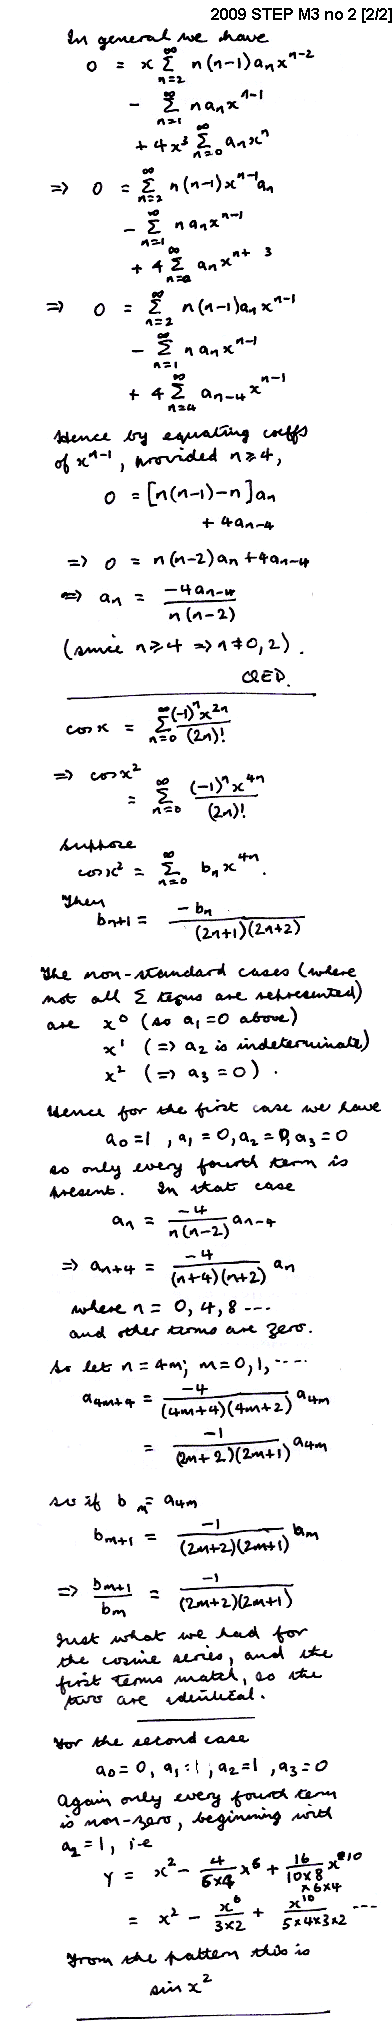 2009 STEP M3 no 2 [2/2]
In general we have
0 = x ∑_{n=2}^{∞} n(n-1)a_n x^{n-2}
- ∑_{n=1}^{∞} n a_n x^{n-1}
+ 4x³ ∑_{n=0}^{∞} a_n x^n
=> 0 = ∑_{n=2}^{∞} n(n-1)x^{n-1}a_n
- ∑_{n=1}^{∞} n a_n x^{n-1}
+ 4 ∑_{n=0}^{∞} a_n x^{n+3}
=> 0 = ∑_{n=2}^{∞} n(n-1)a_n x^{n-1}
- ∑_{n=1}^{∞} n a_n x^{n-1}
+ 4 ∑_{n=4}^{∞} a_{n-4} x^{n-1}
Hence by equating coeffs
of x^{n-1}, provided n ≥ 4,
0 = [n(n-1)-n]a_n
+ 4a_{n-4}
=> 0 = n(n-2)a_n + 4a_{n-4}
=> a_n = -4a_{n-4} / n(n-2)
(since n ≥ 4 => n ≠ 0, 2).
QED.
cos x = ∑_{n=0}^{∞} (-1)^n x^{2n} / (2n)!
=> cos x²
= ∑_{n=0}^{∞} (-1)^n x^{4n} / (2n)!
Suppose
cos x² = ∑_{n=0}^{∞} b_n x^{4n}.
Then
b_{n+1} = -b_n / (2n+1)(2n+2)
The non-standard cases (where
not all ∑ terms are represented)
are x⁰ (so a₁ = 0 above)
x¹ (=> a₂ is indeterminate)
x² (=> a₃ = 0).
Hence for the first case we have
a₀ = 1, a₁ = 0, a₂ = 0, a₃ = 0
so only every fourth term is
present. In that case
a_n = -4 / n(n-2) a_{n-4}
=> a_{n+4} = -4 / (n+4)(n+2) a_n
where n = 0, 4, 8 ---
and other terms are zero.
So let n = 4m; m = 0, 1, ----
a_{4m+4} = -4 / (4m+4)(4m+2) a_{4m}
= -1 / (2m+2)(2m+1) a_{4m}
so if b_m = a_{4m}
b_{m+1} = -1 / (2m+2)(2m+1) b_m
=> b_{m+1} / b_m = -1 / (2m+2)(2m+1)
Just what we had for
the cosine series, and the
first terms match, so the
two are identical.
For the second case
a₀ = 0, a₁ = 1, a₂ = 1, a₃ = 0
Again only every fourth term
is non-zero, beginning with
a₂ = 1, i.e
y = x² - 4 / 6×4 x⁶ + 16 / 10×8×6×4 x¹⁰
= x² - x⁶ / 3×2 + x¹⁰ / 5×4×3×2 ---
From the pattern this is
sin x²